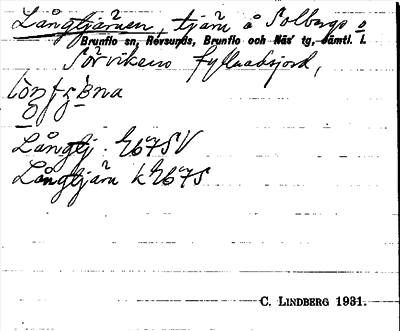 Långtjärnen, tjärn å Solbergs o
Brunflo sn, Revsunds, Brunflo och Näs' tg, Jämtl. l.
Sörvikens fyllnadsjord,
Långtj. 267SV
Långtjärn k 267S
C. LINDBERG 1931.